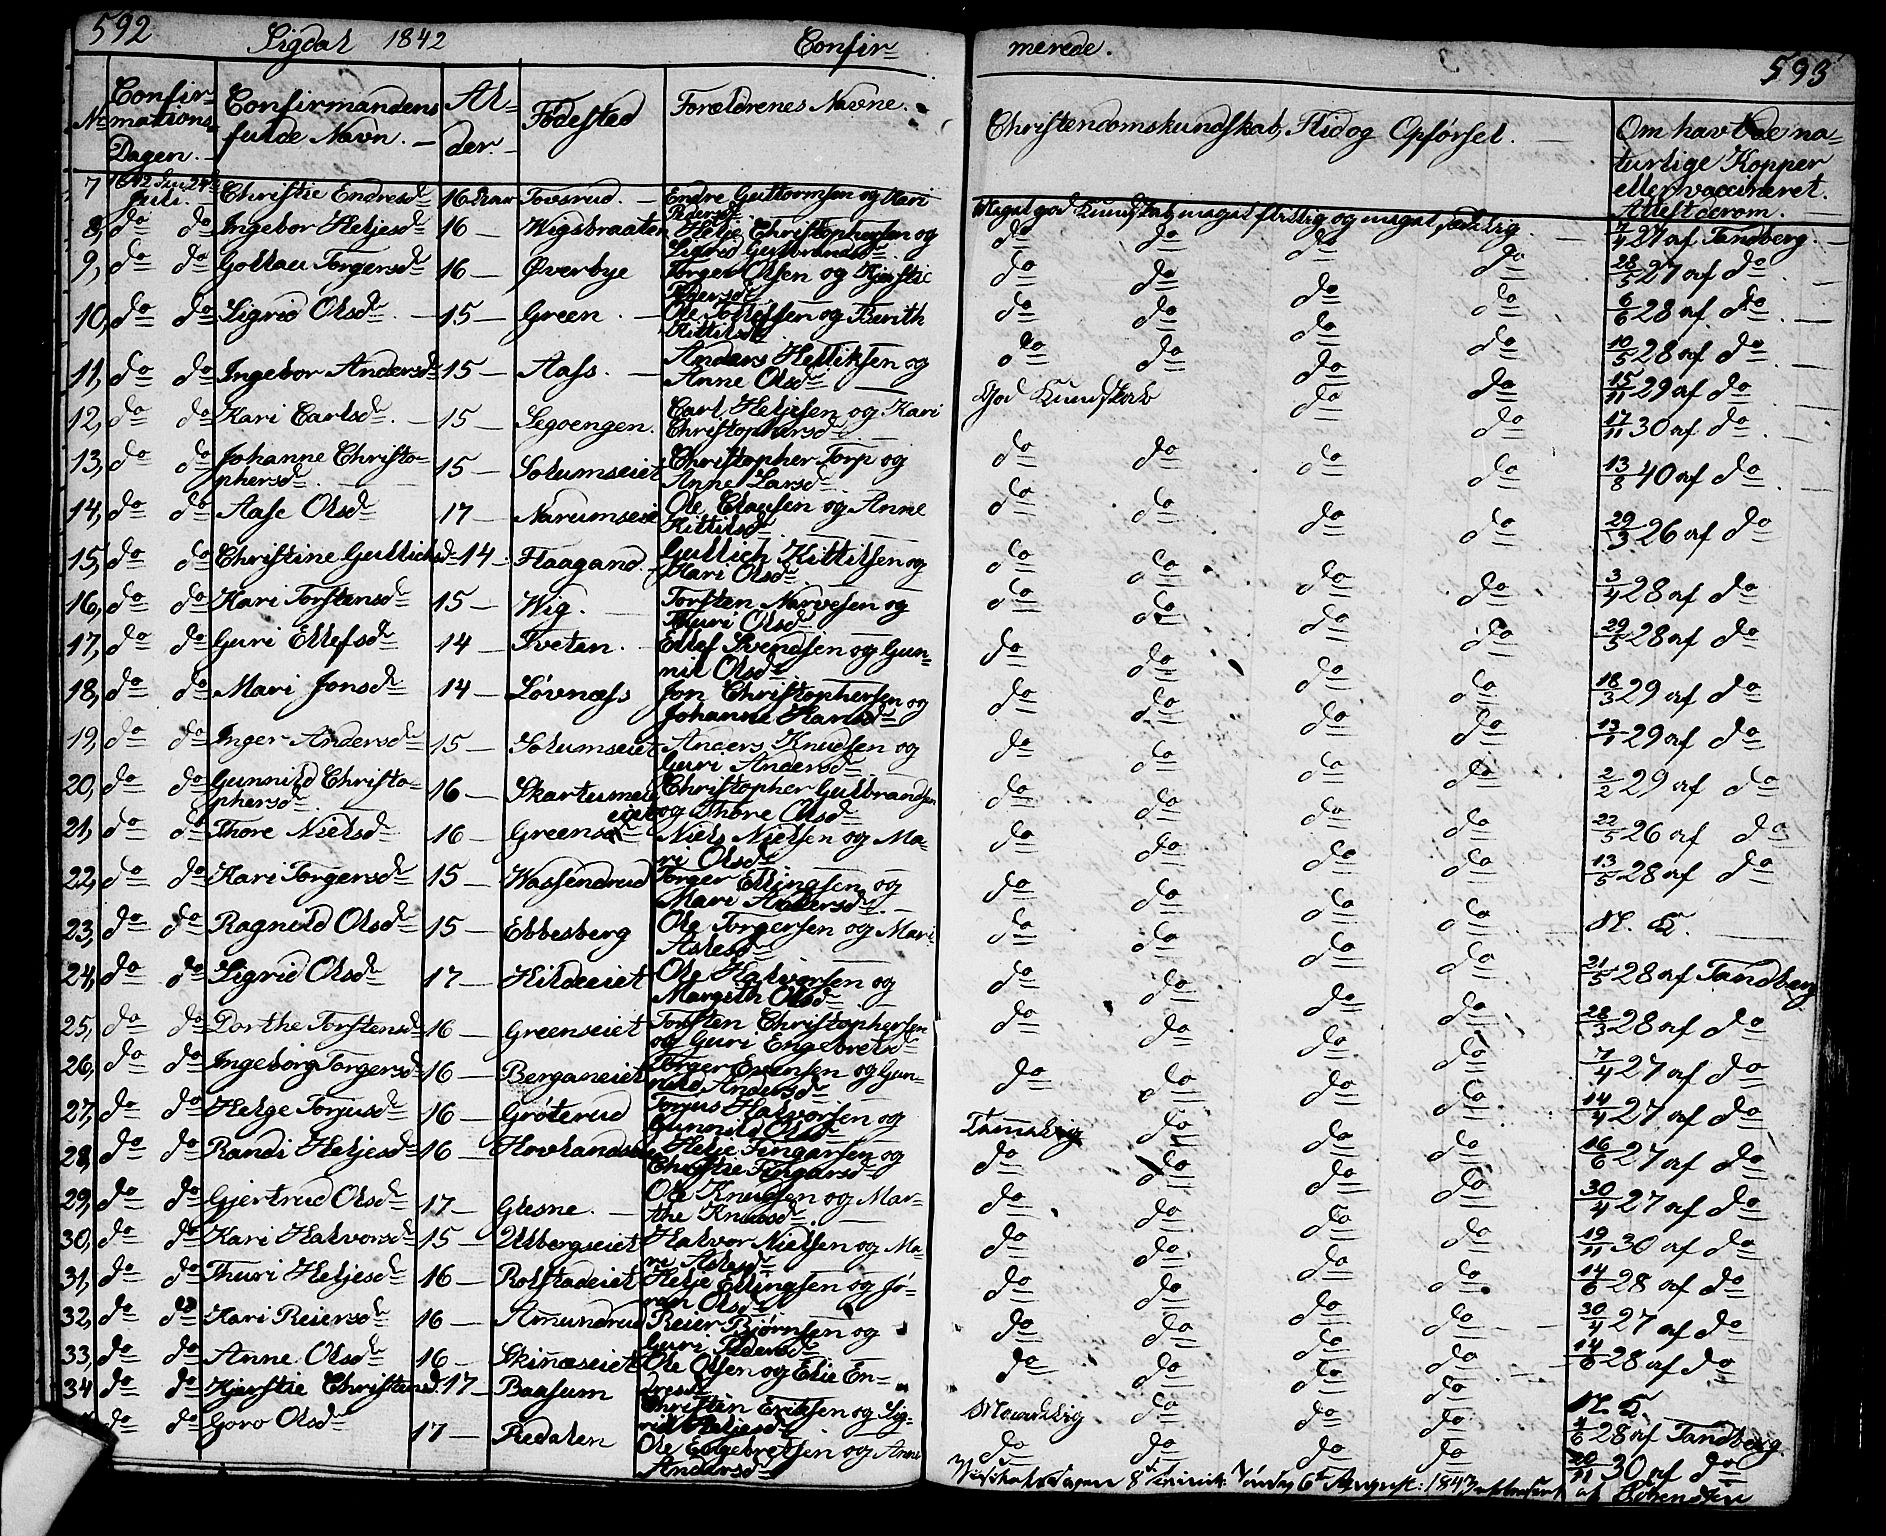 592 Sigdal 1842 Confir=
merede. 593
No Confir=mations Dagen. Confirmandens fulde Navn. Al=der. Fødested Forældrenes Navne. Christendomskundskab, Flid og Opførsel. Om havt de na=turlige Kopper eller vaccineret. Attest derom.
7 1842 24de Juli. Christie Endresdr 16 Aar Tovsrud. Endre Guttormsen og Kari Pedersdr Meget god Kundskab, meget flittig og meget sædelig. 7/4 27 af Tandberg.
8, do do Ingebor Heljesdr 16 Wigsbraaten Helje Christophersen og Sigrid Gulbrandsdr do do do do 28/5 27 af do
9, do do Gollau Torgersdr 16 Øverbye Torger Olsen og Kjerstie Pedersdr do do do do 6/6 28 af do
10, do do Sigrid Olsdr 15 Green. Ole Tollefsen og Berith Kittilsdr do do do do 10/5 28 af do
11, do do Ingebor Andersdr 15 Aass. Anders Helliksen og Anne Olsdr do do do do 15/11 29 af do
12, do do Kari Carlsdr. 15 Segoengen. Carl Heljesen og Kari Christophersdr God Kundskab do do 17/11 30 af do
13, do do Johanne Christo=phersdr. 15 Solumseiet Christopher Torp og Anne Larsdr do do do do 13/8 40 af do
14, do do Aase Olsdr 17 Narumseie Ole Clausen og Anne Kittilsdr do do do do 29/3 26 af do
15, do do Christine Gullichsdr 14 Flaagand. Gullich Kittilsen og Kari Olsdr do do do do 3/4 28 af do
16, do do Kari Torstensdr 15 Wig. Torsten Narvesen og Thuri Olsdr do do do do 29/5 28 af do
17, do do Guri Ellefsdr 14 Tveten. Ellef Svendsen og Gun=nil Olsdr do do do do 18/3 29 af do
18, do do Mari Jonsdr 14 Løvnæss Jon Christophersen og Johanne Karlsdr do do do do 13/1 29 af do
19, do do Inger Andersdr 15 Solumseiet Anders Knudsen og Guri Andersdr do do do do 2/2 29 af do
20, do do Gunnild Christo=phersdr 16 Skartumeiet Christopher Gulbrandsen og Thore Olsdr do do do do 22/5 26 af do
21, do do Thore Nielsdr 16 Niels Nielsen og Ma=ri Olsdr do do do do 13/5 28 af do
22, do do Kari Torgersdr 15 Wassendrud Torger Ellingsen og Mari do do do do N. K.
23, do do Ragnild Olsdr 15 Ebbesberg Ole Torgersen og Mari Aslesdr do do do do 21/5 28 af Tandberg
24, do do Sigrid Olsdr 17 Hildeeiet Ole Halvorsen og Margith Olsdr do do do do 28/3 28 af do
25, do do Dorthe Torstensdr 16 Greenseiet Torsten Christophersen og Guri Engebretsdr do do do do 7/4 27 af do
26, do do Ingeborg Torgersdr 16 Berganeiet Torger Evensen og Gun=nild Andersdr do do do do 14/4 27 af do
27, do do Helge Torjusdr 16 Grøterud Torjus Halvorsen og Gunnild Olsdr Tæmmelig do do do 16/6 27 af do
28, do do Randi Heljesdr 16 Helje Fingarsen og Christie Fingarsdr do do do do 30/4 27 af do
29, do do Gjertrud Olsdr 17 Glesne. Ole Knudsen og Mar=the Knudsdr do do do do 19/11 30 af do
30, do do Kari Halvorsdr 15 Ulbergseiet Halvor Nielsen og Ma=ri Aslesdr do do do do 14/6 28 af do
31, do do Thuri Heljesdr 16 Rolstadeiet Helje Ellingsen og Jø=ran Olsdr do do do do 30/4 27 af do
32, do do Kari Reiersdr 16 Amundrud Reier Bjørnsen og Guri Pedersdr do do do do 14/6 28 af do
33, do do Anne Olsdr 16 Skinæseiet Ole Olsen og Elie En=dresdr do do do do N. K.
34 do do Kjerstie Christensd. 17 Baasum Christen Eriksen og Sig=rid Heljesdr Maadelig do do do 4/6 28 af Tandberg
do do Goro Olsdr 17 Redalen Ole Engebretsen og Anne Andersdr do do do do 20/11 30 af do
8de 6te August: 1843 af